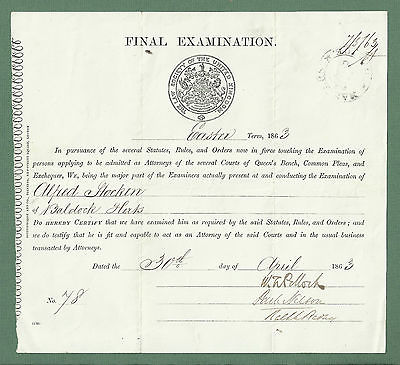 FINAL EXAMINATION.
THE LAW SOCIETY OF THE UNITED KINGDOM
Easter Term, 1863
In pursuance of the several Statutes, Rules, and Orders now in force touching the Examination of
persons applying to be admitted as Attorneys of the several Courts of Queen's Bench, Common Pleas, and
Exchequer, We, being the major part of the Examiners actually present at and conducting the Examination of
Alfred Hocken
of Baldock Herts
Do HEREBY CERTIFY that we have examined him as required by the said Statutes, Rules, and Orders; and
we do testify that he is fit and capable to act as an Attorney of the said Courts and in the usual business
transacted by Attorneys.
Dated the 30th day of April 1863
No. 78